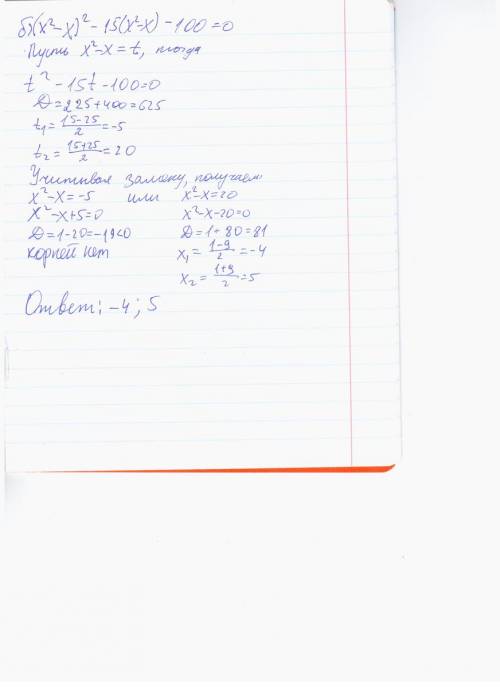 б) (x²-x)² - 15(x²-x) - 100 = 0
Пусть x²-x = t, тогда
t² - 15t - 100 = 0
D = 225 + 400 = 625
t₁ = (15-25)/2 = -5
t₂ = (15+25)/2 = 20
Учитывая замену, получаем:
x²-x = -5 или x²-x = 20
x²-x+5 = 0 x²-x-20 = 0
D = 1-20 = -19 < 0 D = 1+80 = 81
корней нет x₁ = (1-9)/2 = -4
x₂ = (1+9)/2 = 5
Ответ: -4; 5